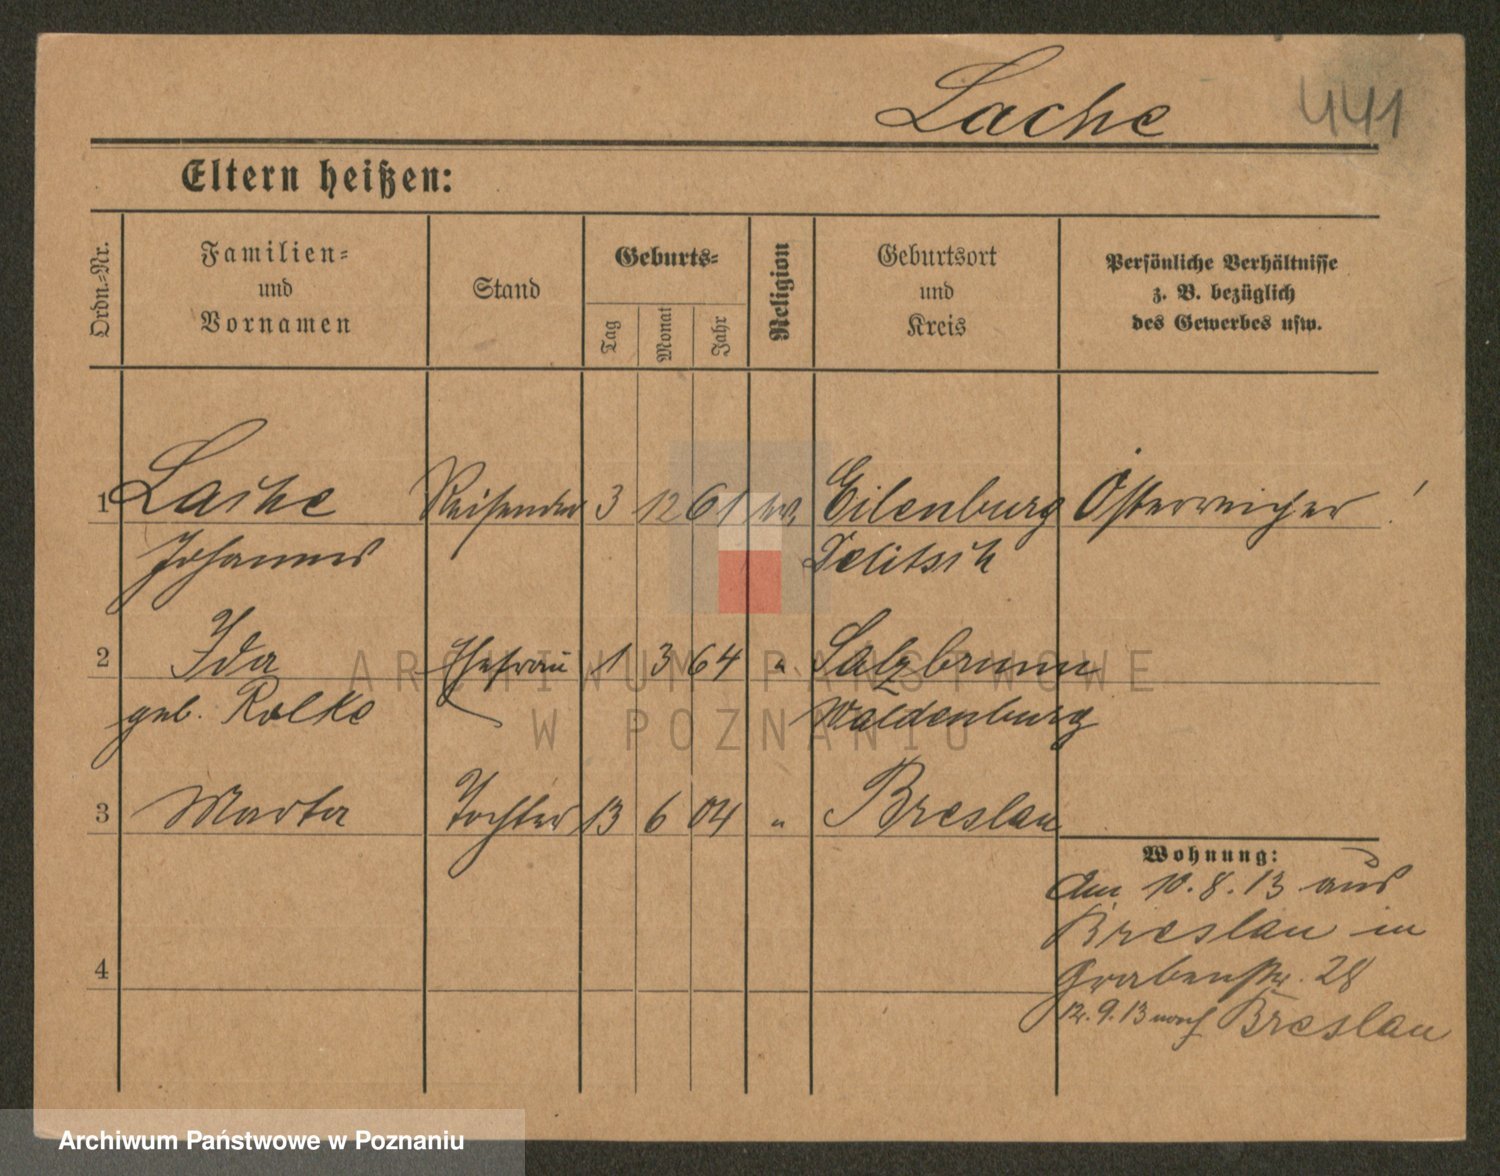 Lache 441
Eltern heißen:
Ordn.-Nr.
Familien-
und
Vornamen
Stand
Geburts-
Tag
Monat
Jahr
Religion
Geburtsort
und
Kreis
Persönliche Verhältnisse
z. B. bezüglich
des Gewerbes usw.
1 Lache Reisender 3 12 61 ev. Eilenburg Österreicher !
Johannes Delitsch
2 Ida Ehefrau 1 3 64 " Salzbrunn
geb. Rolke Waldenburg
3 Marta Tochter 13 6 04 " Breslau
Wohnung:
Am 10.8.13 aus
Breslau in
4 Grabenstr. 28
12.9.13 nach Breslau
ARCHIWUM PAŃSTWOWE
W POZNANIU
Archiwum Państwowe w Poznaniu